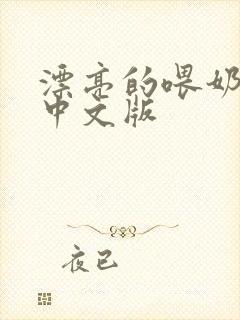 漂亮的喂奶
中文版
夜已